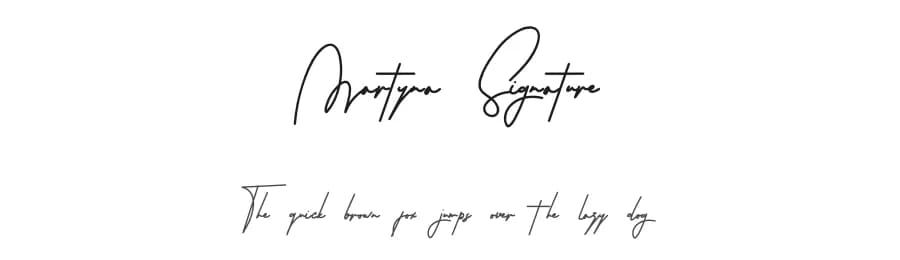 Martyna Signature
The quick brown fox jumps over the lazy dog